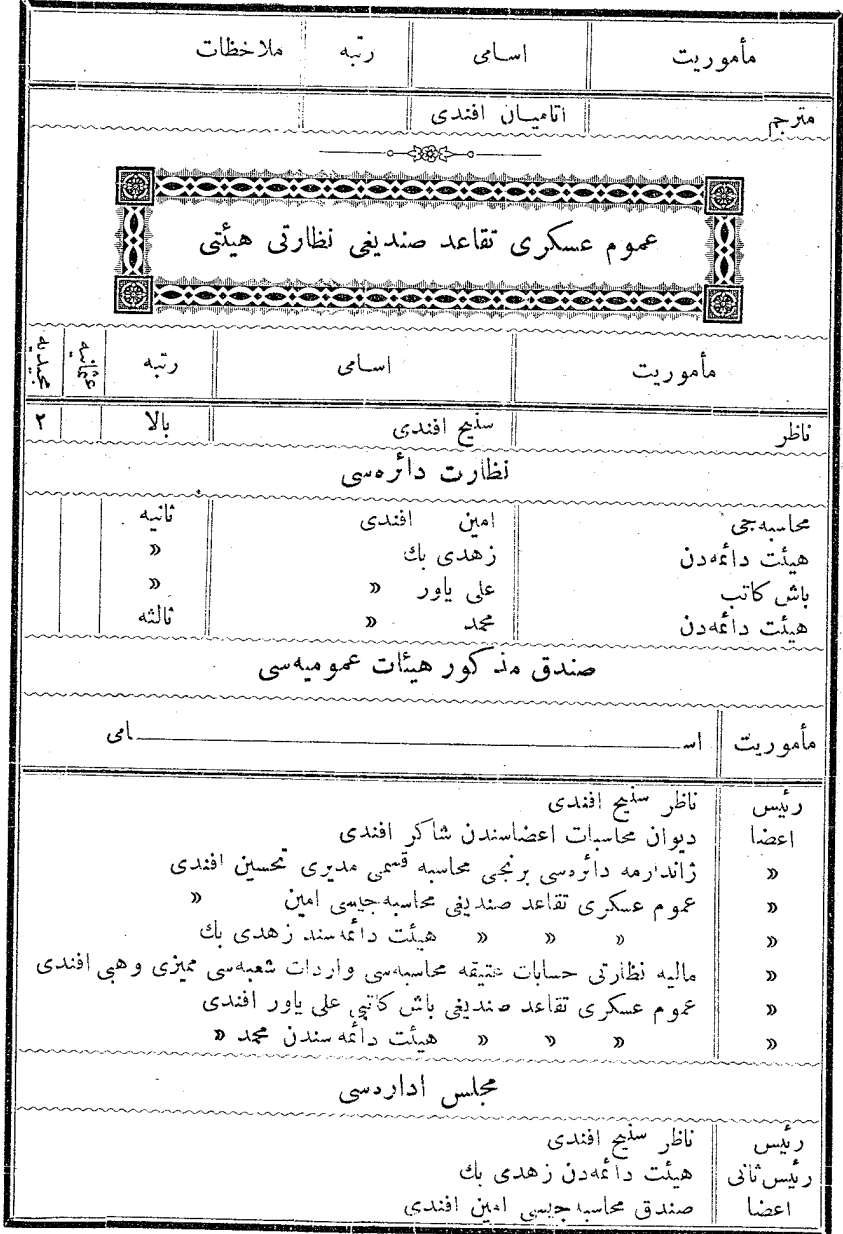 مأموریت اسامی رتبه ملاخظات
مترجم اتامیان افندی
عموم عسکری تقاعد صندیغی نظارتی هیئتی
مأموریت اسامی رتبه عثمانیه مجیدیه
ناظر سنیح افندی بالا ٢
نظارت دائرەسی
محاسبه‌جی امین افندی ثانیه
هیئت دائمه‌دن زهدی بك »
باش کاتب علی یاور » »
هیئت دائمه‌دن محمد » ثالثه
صندق مذکور هیئات عمومیه‌سی
مأموریت اســـامی
رئیس ناظر سنیح افندی
اعضا دیوان محاسبات اعضاسندن شاکر افندی
» ژاندارمه دائره‌سی برنجی محاسبه قسمی مدیری تحسین افندی
» عموم عسکری تقاعد صندیغی محاسبه‌جیسی امین »
» » » » هیئت دائمه‌سند زهدی بك
» مالیه نظارتی حسابات عتیقه محاسبه‌سی واردات شعبه‌سی ممیزی وهبی افندی
» عموم عسکری تقاعد صندیغی باش کاتبی علی یاور افندی
» » » » هیئت دائمه‌سندن محمد »
مجلس اداره‌سی
رئیس ناظر سنیح افندی
رئیس ثانی هیئت دائمه‌دن زهدی بك
اعضا صندق محاسبه‌جیسی امین افندی